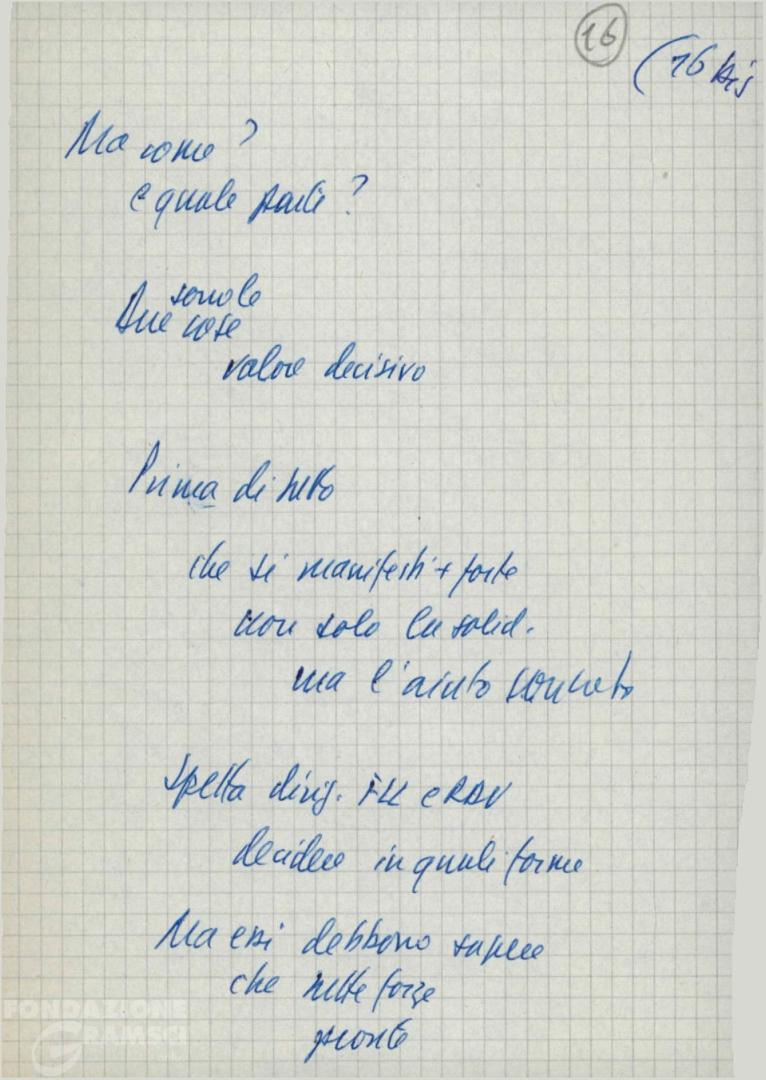 16
(16 bis
Ma come?
e quale parte?
sono le
Due cose
valore decisivo
Prima di tutto
che si manifesti + forte
non solo la solid.
ma l'aiuto concreto
Spetta dirig. FLL e RDV
decidere in quali forme
Ma essi debbono sapere
che tutte forze
pronte
FONDAZIONE
GRAMSCI